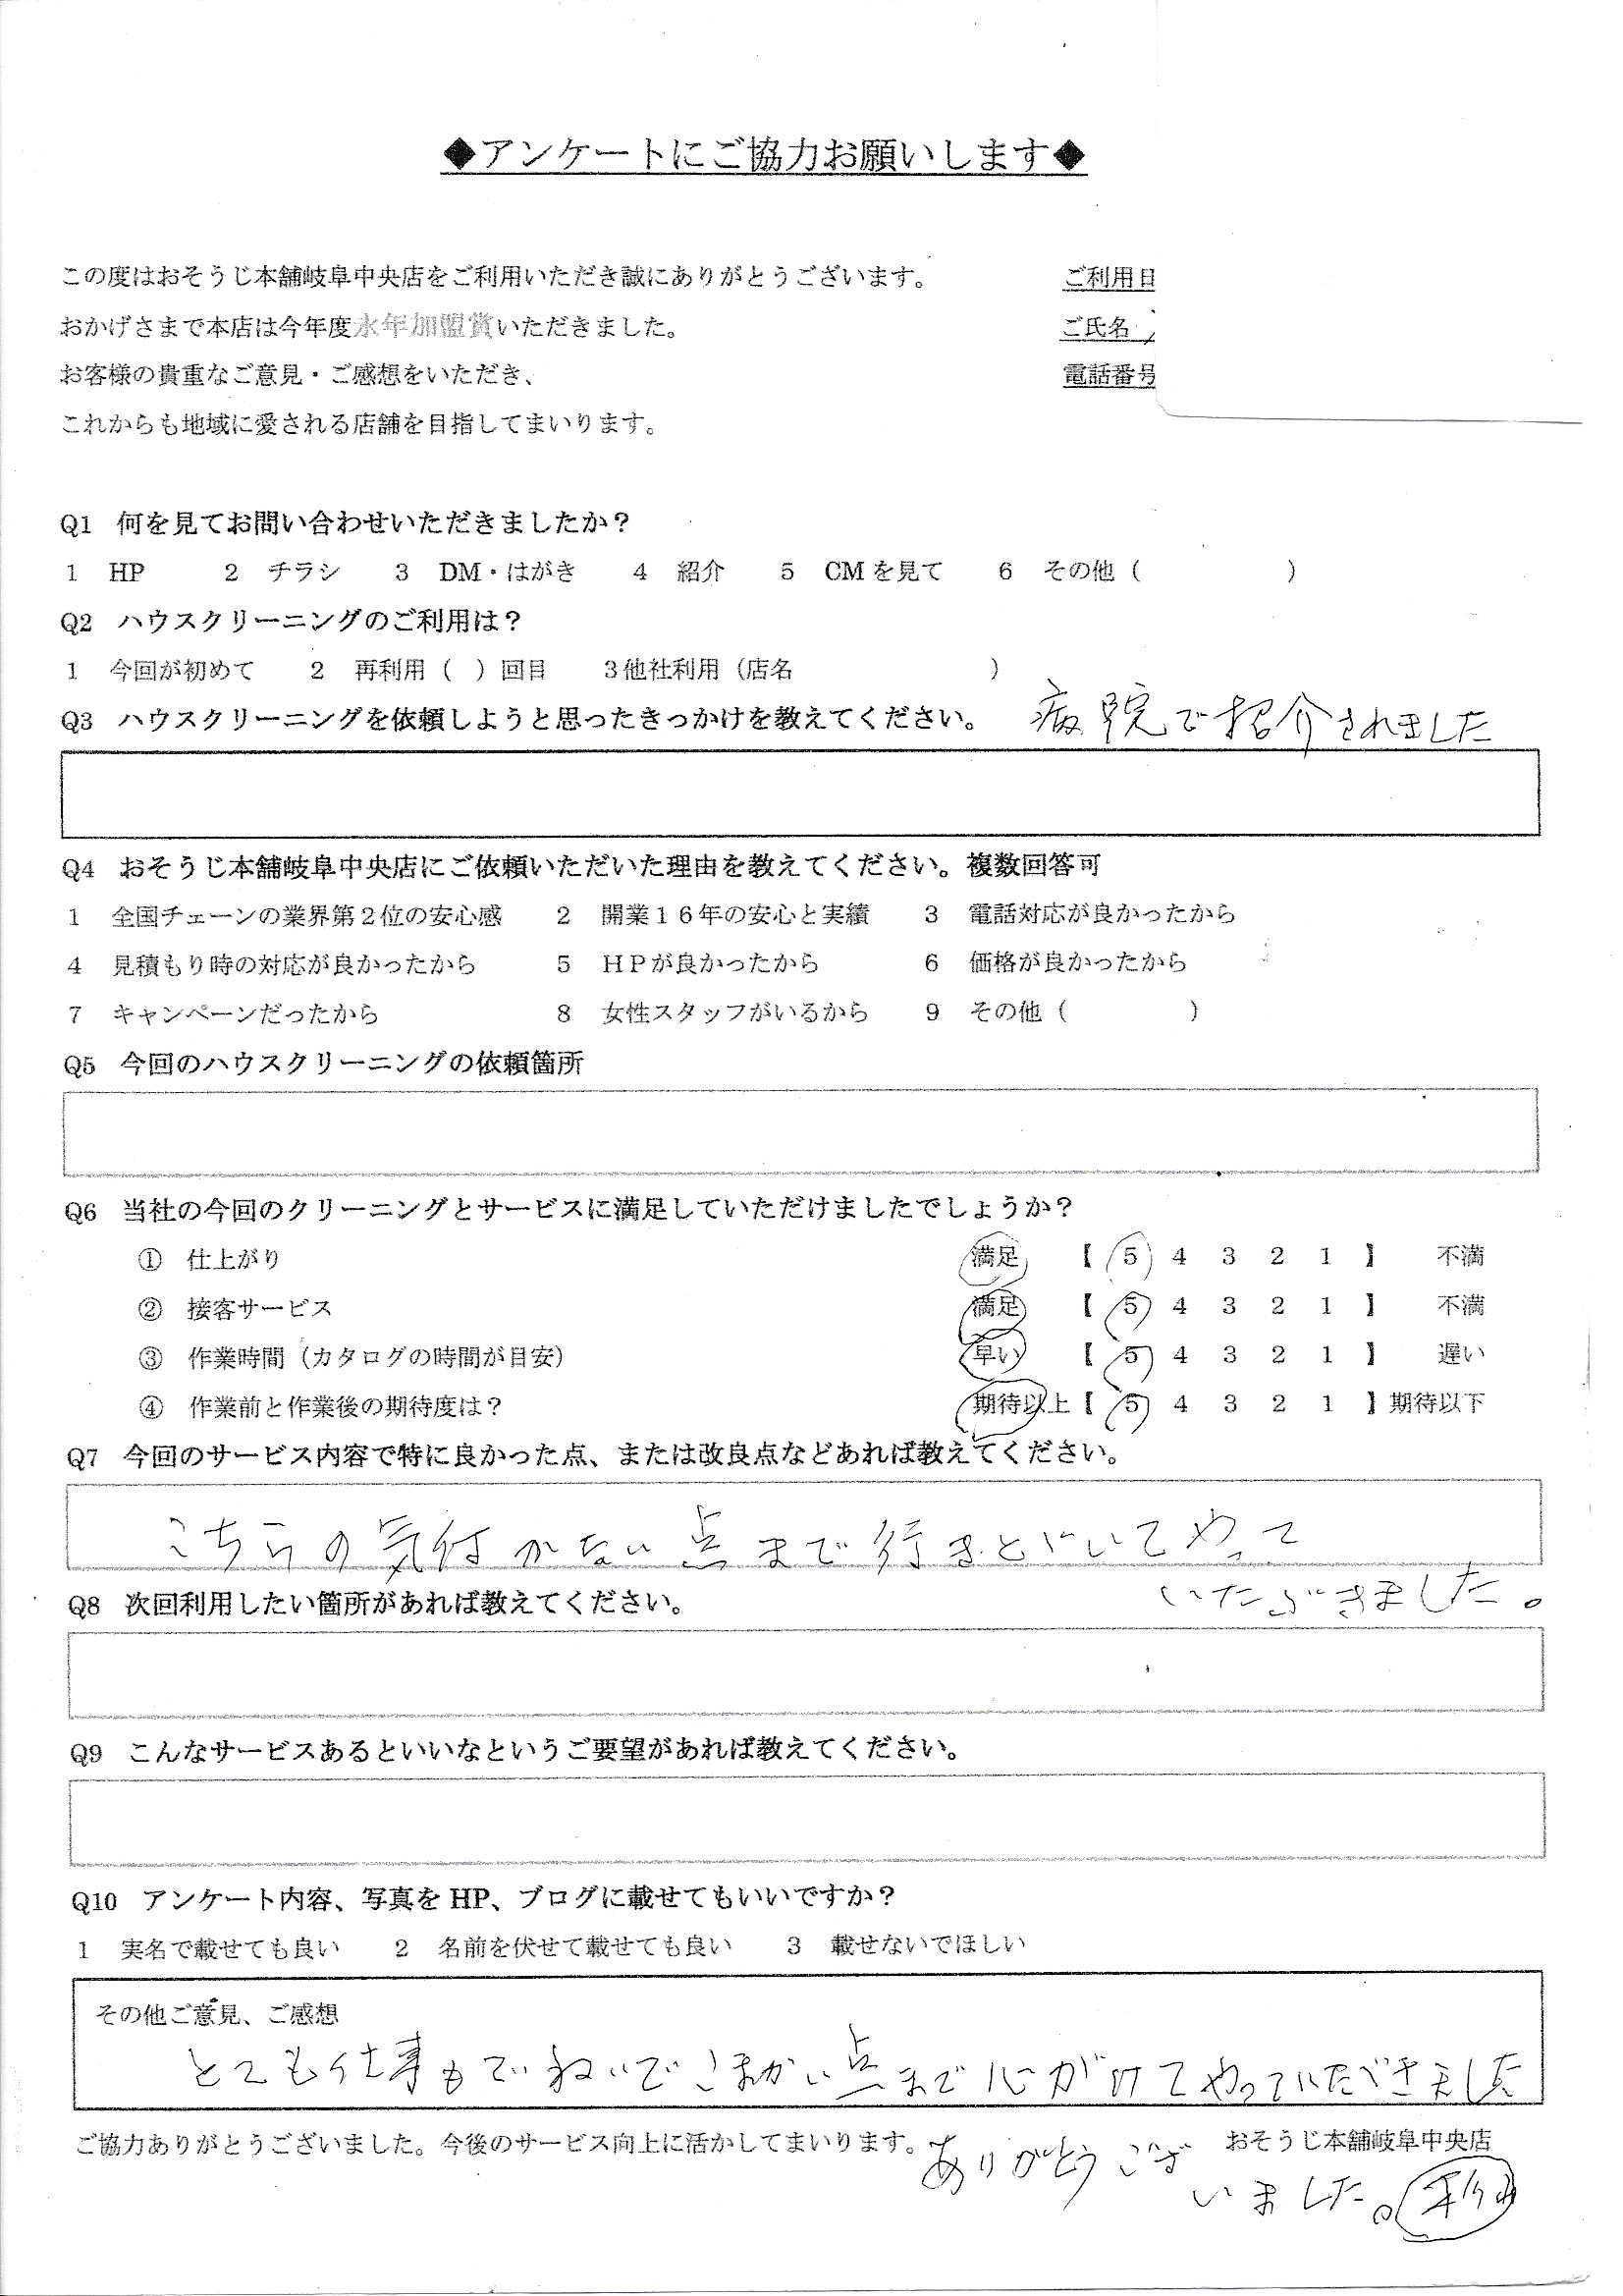 ◆アンケートにご協力お願いします◆
この度はおそうじ本舗岐阜中央店をご利用いただき誠にありがとうございます。
ご利用日
おかげさまで本店は今年度永年加盟賞いただきました。
ご氏名
お客様の貴重なご意見・ご感想をいただき、
電話番号
これからも地域に愛される店舗を目指してまいります。
Q1 何を見てお問い合わせいただきましたか？
1 HP 2 チラシ 3 DM・はがき 4 紹介 5 CMを見て 6 その他（ ）
Q2 ハウスクリーニングのご利用は？
1 今回が初めて 2 再利用（ ）回目 3他社利用（店名 ）
Q3 ハウスクリーニングを依頼しようと思ったきっかけを教えてください。
病院で紹介されました
Q4 おそうじ本舗岐阜中央店にご依頼いただいた理由を教えてください。複数回答可
1 全国チェーンの業界第２位の安心感 2 開業１６年の安心と実績 3 電話対応が良かったから
4 見積もり時の対応が良かったから 5 ＨＰが良かったから 6 価格が良かったから
7 キャンペーンだったから 8 女性スタッフがいるから 9 その他（ ）
Q5 今回のハウスクリーニングの依頼箇所
Q6 当社の今回のクリーニングとサービスに満足していただけましたでしょうか？
① 仕上がり 満足 【 5 4 3 2 1 】 不満
② 接客サービス 満足 【 5 4 3 2 1 】 不満
③ 作業時間（カタログの時間が目安） 早い 【 5 4 3 2 1 】 遅い
④ 作業前と作業後の期待度は？ 期待以上【 5 4 3 2 1 】期待以下
Q7 今回のサービス内容で特に良かった点、または改良点などあれば教えてください。
こちらの気付かない点まで行きとどいてやって
いただきました。
Q8 次回利用したい箇所があれば教えてください。
Q9 こんなサービスあるといいなというご要望があれば教えてください。
Q10 アンケート内容、写真を HP、ブログに載せてもいいですか？
1 実名で載せても良い 2 名前を伏せて載せても良い 3 載せないでほしい
その他ご意見、ご感想
とても仕事もていねいでこまかい点まで心がけてやっていただきました
ご協力ありがとうございました。今後のサービス向上に活かしてまいります。
おそうじ本舗岐阜中央店
ありがとうござ
いました。